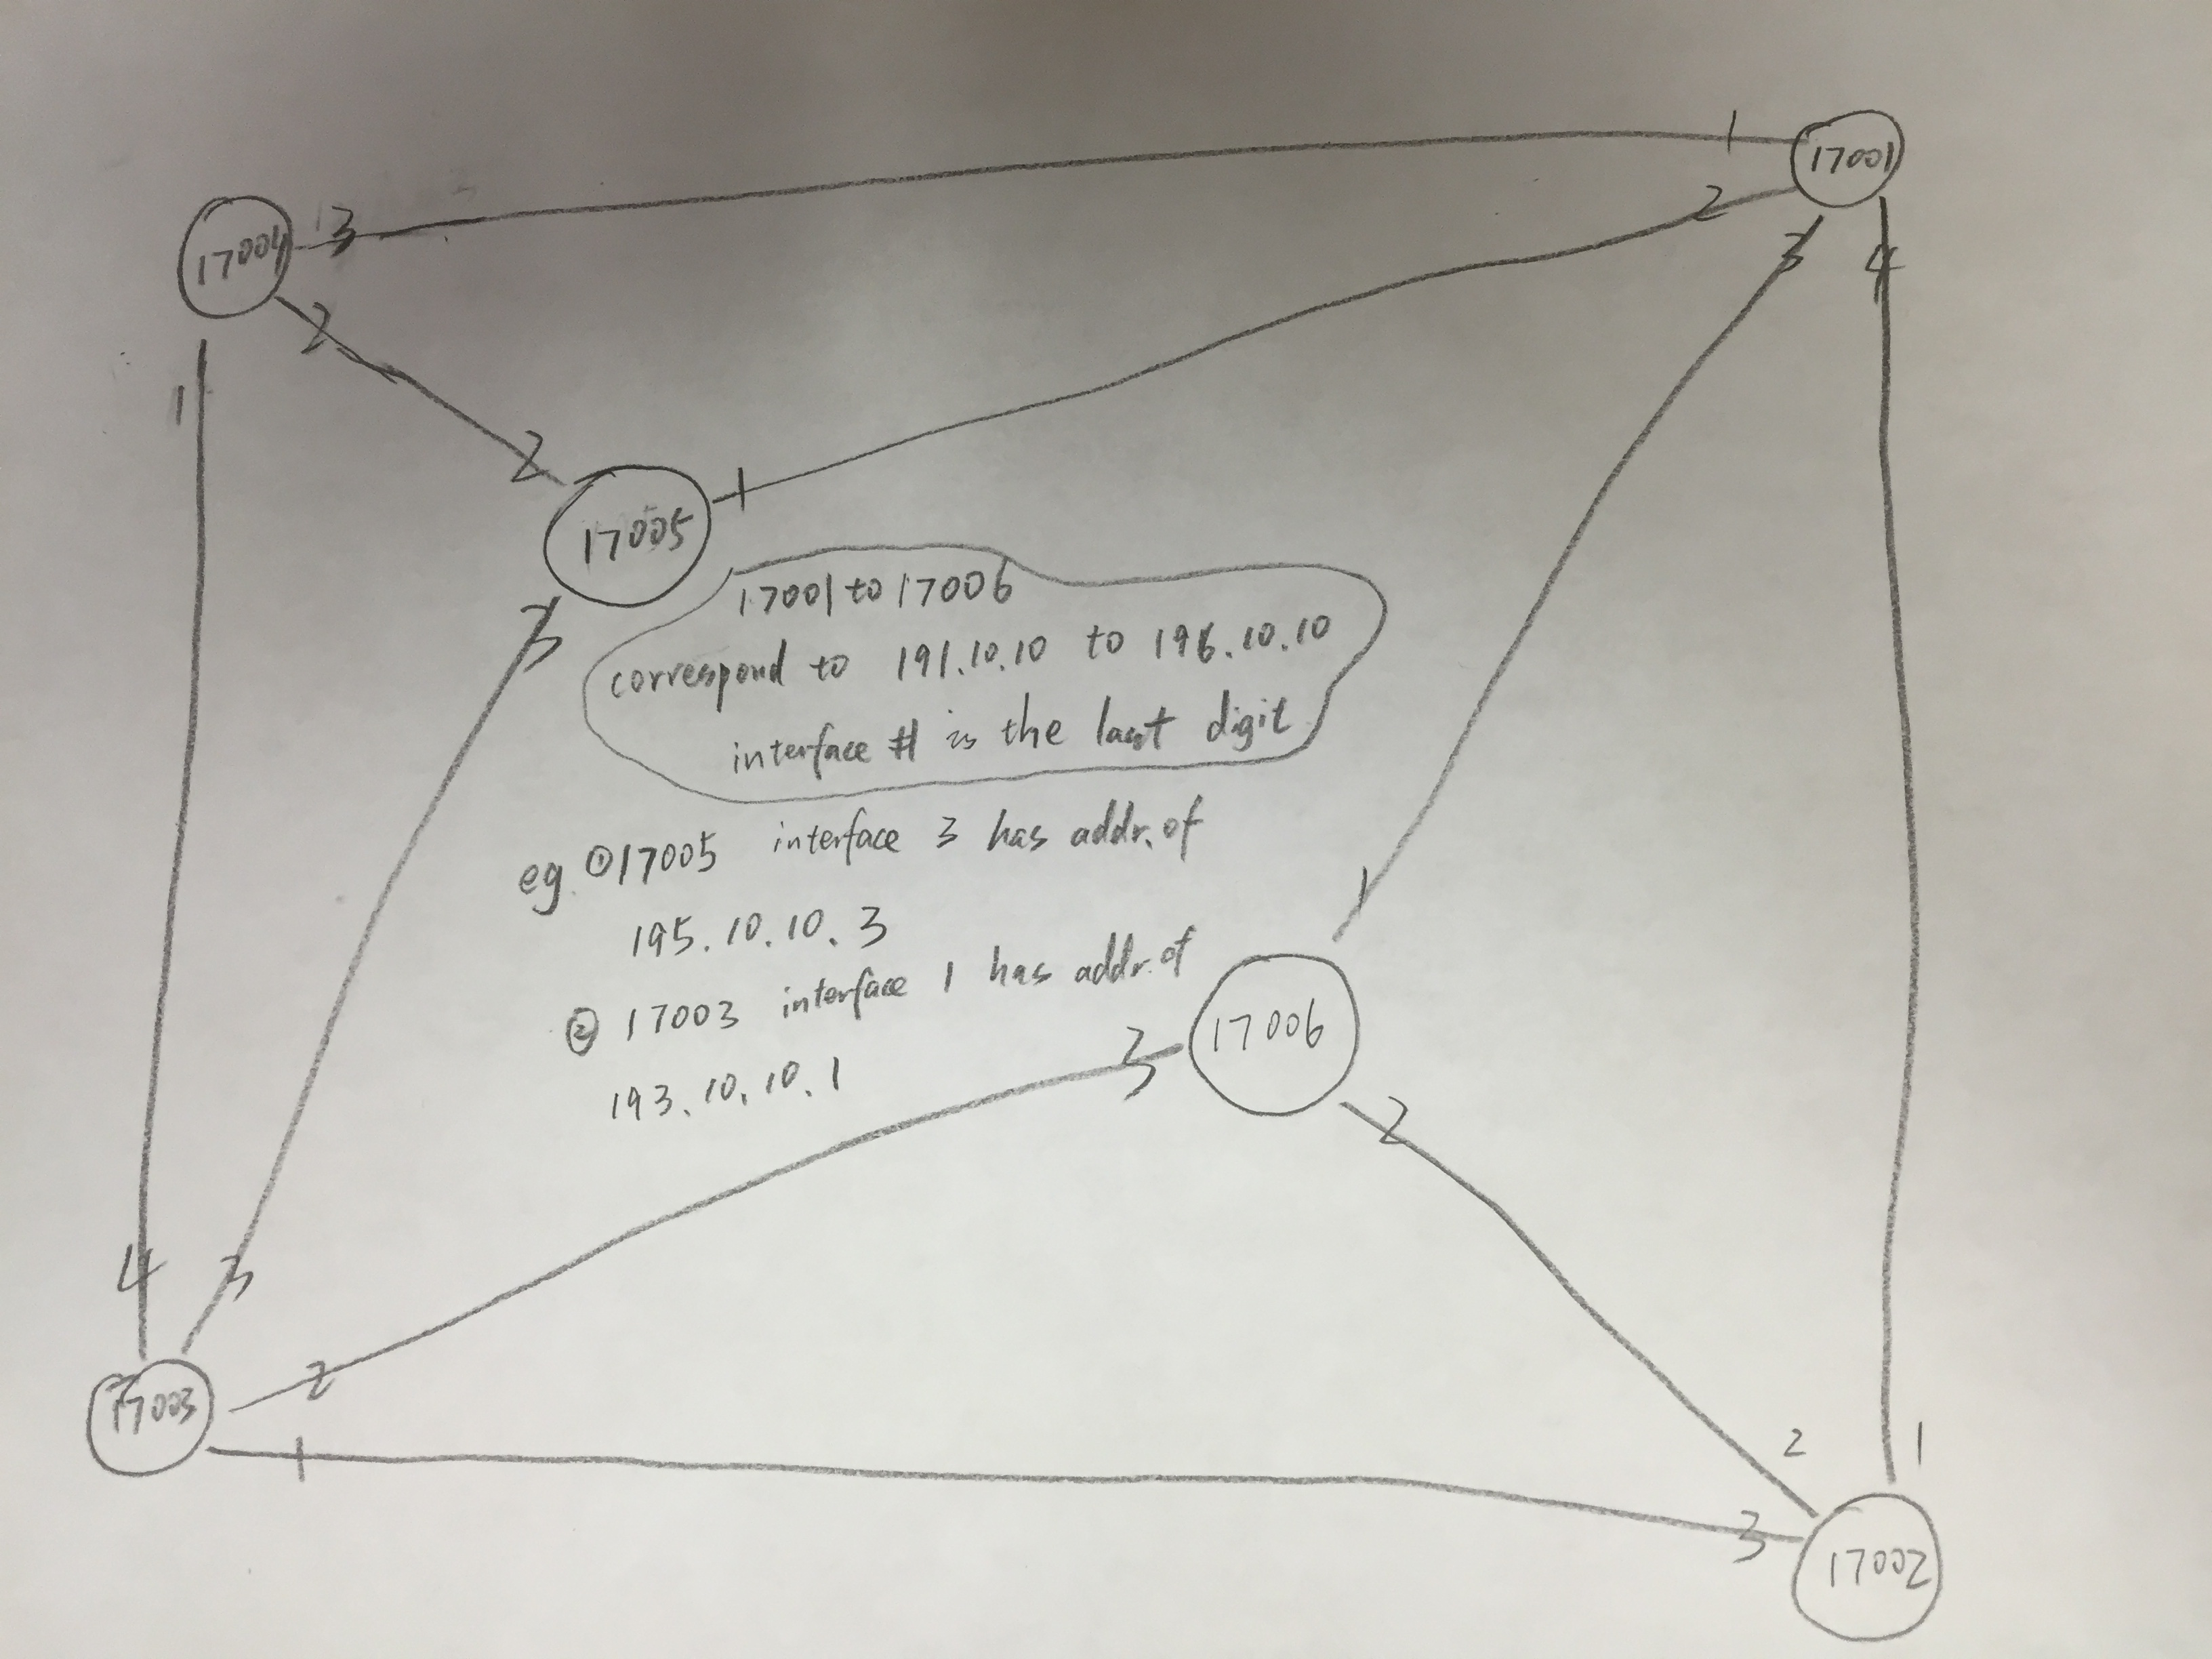 1
17001
3
2
17004
3
4
2
1
2
1
17005
17001 to 17006
3
correspond to 191.10.10 to 196.10.10
interface # is the last digit
eg. ①17005 interface 3 has addr. of
1
195.10.10.3
② 17003 interface 1 has addr. of
17006
3
193.10.10.1
2
4 3
2
17003
1
2 1
3
17002